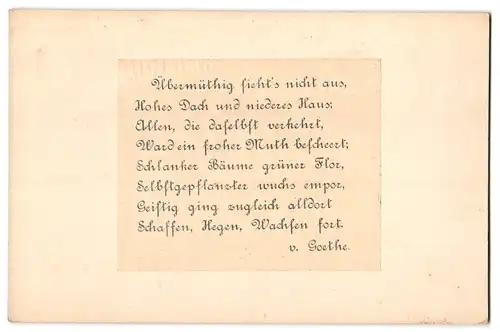 Übermüthig sieht's nicht aus,
Hohes Dach und niederes Haus;
Allen, die daselbst verkehrt,
Ward ein froher Muth bescheert;
Schlanker Bäume grüner Flor,
Selbstgepflanzter wuchs empor,
Geistig ging zugleich alldort
Schaffen, Hegen, Wachsen fort.
v. Goethe.